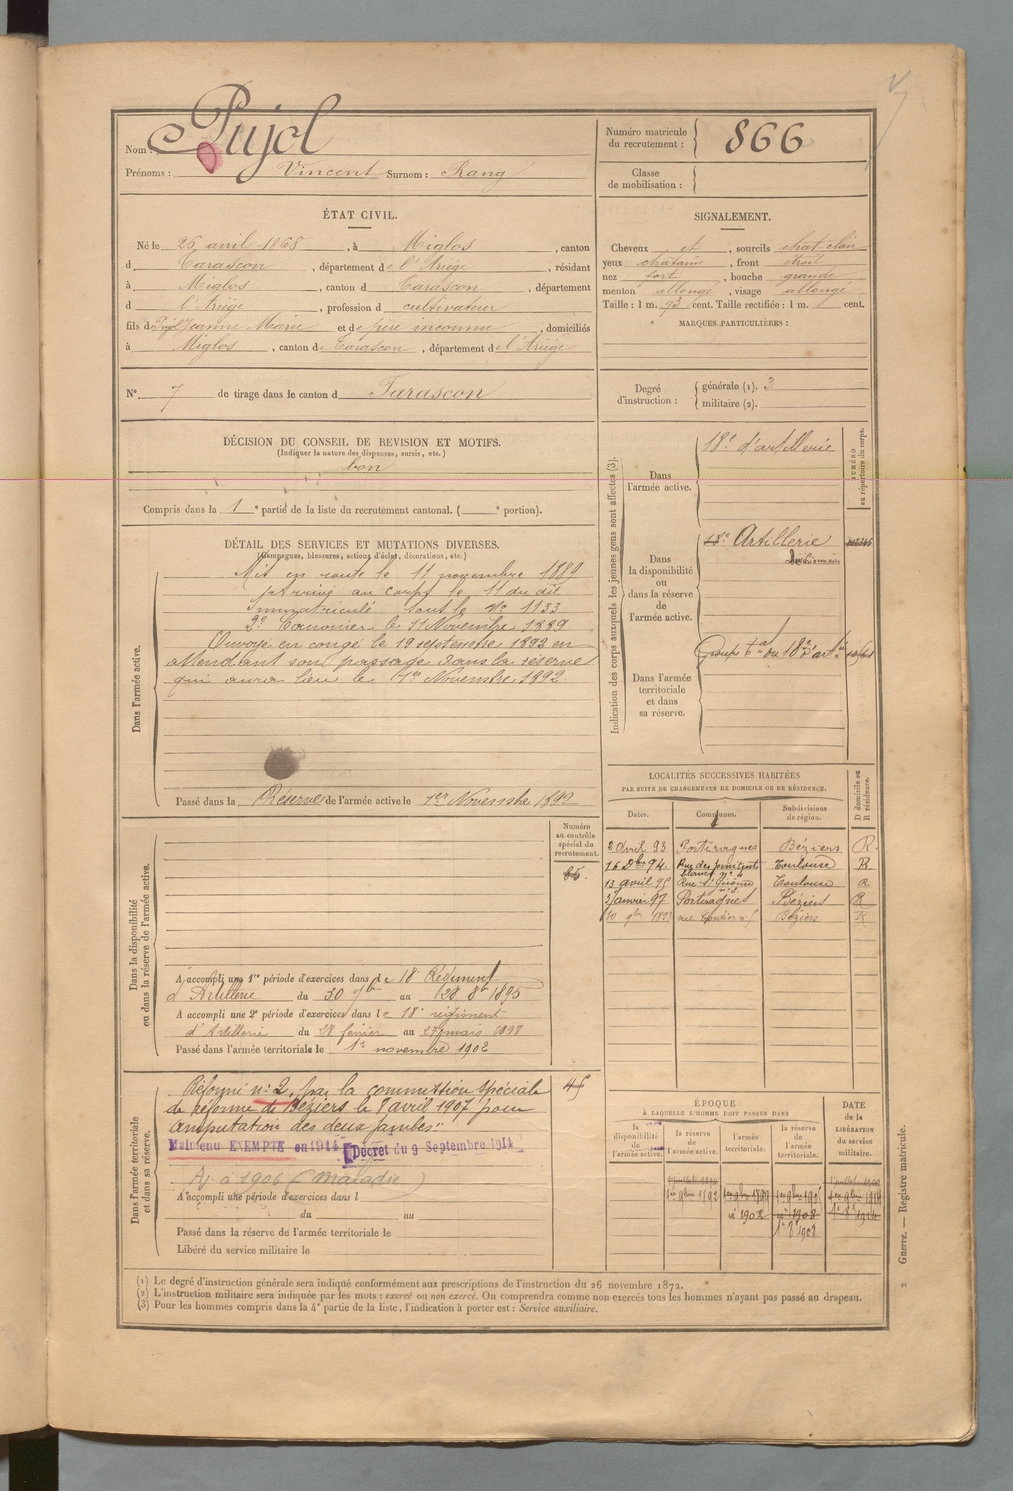 Nom : Pujol
Prénoms : Vincent Surnom : Rang
Numéro matricule du recrutement : 866
Classe de mobilisation :
ÉTAT CIVIL.
Né le 26 avril 1868, à Miglos, canton
d Tarascon, département de l'Ariège, résidant
à Miglos, canton d Tarascon, département
d l'Ariège, profession d cultivateur
fils de Pujol Jeanne Marie et de père inconnu, domiciliés
à Miglos, canton de Tarascon, département de l'Ariège
N° 7 de tirage dans le canton d Tarascon
SIGNALEMENT.
Cheveux et, sourcils chat clair
yeux chatains, front étroit
nez fort, bouche grande
menton allongé, visage allongé
Taille : 1 m. cent. Taille rectifiée : 1 m. cent.
MARQUES PARTICULIÈRES :
Degré d'instruction : générale (1). 3
militaire (2).
DÉCISION DU CONSEIL DE REVISION ET MOTIFS.
(Indiquer la nature des dispenses, sursis, etc.)
bon
Compris dans la 1e partie de la liste du recrutement cantonal. ( e portion).
DÉTAIL DES SERVICES ET MUTATIONS DIVERSES.
(Campagnes, blessures, actions d'éclat, décorations, etc.)
Dans l'armée active.
Mis en route le 11 novembre 1889
Arrivé au corps le 11 du dit
Immatriculé sous le N° 1133
2e Canonnier le 11 Novembre 1889
Envoyé en congé le 19 septembre 1892 en
attendant son passage dans la réserve
qui aura lieu le 1er Novembre 1892
Passé dans la Réserve de l'armée active le 1er Novembre 1892
Indication des corps auxquels les jeunes gens sont affectés (3).
NUMÉRO au répertoire du corps.
Dans l'armée active.
18e d'artillerie
Dans la disponibilité ou dans la réserve de l'armée active.
18e Artillerie
Dans l'armée territoriale et dans sa réserve.
Groupe tal du 18e d'artie
LOCALITÉS SUCCESSIVES HABITÉES
PAR SUITE DE CHANGEMENTS DE DOMICILE OU DE RÉSIDENCE.
Dates. Communes. Subdivisions de région. D domicile ou R résidence.
2 avril 93 Portiragnes Béziers R.
16 Dbre 94. Rue des pénitents blancs n° 4 Toulouse R.
13 avril 95 Rue St Jérôme Toulouse R
3 janvier 97 Portiragnes Béziers R
10 9bre 1897 rue Béziers R
Dans la disponibilité ou dans la réserve de l'armée active.
Numéro au contrôle spécial du recrutement.
A accompli une 1re période d'exercices dans le 18e Régiment
d'Artillerie du 30 7bre au 8bre 1895
A accompli une 2e période d'exercices dans le 18e régiment
d'Artillerie du 28 février au 27 mars 1898
Passé dans l'armée territoriale le 1er novembre 1902
Dans l'armée territoriale et dans sa réserve.
Réformé n° 2, par la commission spéciale
de réforme de Béziers le 8 avril 1907 pour
"amputation des deux jambes"
45
Maintenu EXEMPTÉ en 1914 Décret du 9 Septembre 1914
Aj. à 1906 (maladie)
A accompli une période d'exercices dans l
du au
Passé dans la réserve de l'armée territoriale le
Libéré du service militaire le
ÉPOQUE
À LAQUELLE L'HOMME DOIT PASSER DANS
la disponibilité de l'armée active. la réserve de l'armée active. l'armée territoriale. la réserve de l'armée territoriale.
DATE de la LIBÉRATION du service militaire.
1er 9bre 1892
à 1902 à 1908
1er 8 1908
(1) Le degré d'instruction générale sera indiqué conformément aux prescriptions de l'instruction du 26 novembre 1872.
(2) L'instruction militaire sera indiquée par les mots : exercé ou non exercé. On comprendra comme non exercés tous les hommes n'ayant pas passé au drapeau.
(3) Pour les hommes compris dans la 4e partie de la liste, l'indication à porter est : Service auxiliaire.
Guerre. — Registre matricule.
2